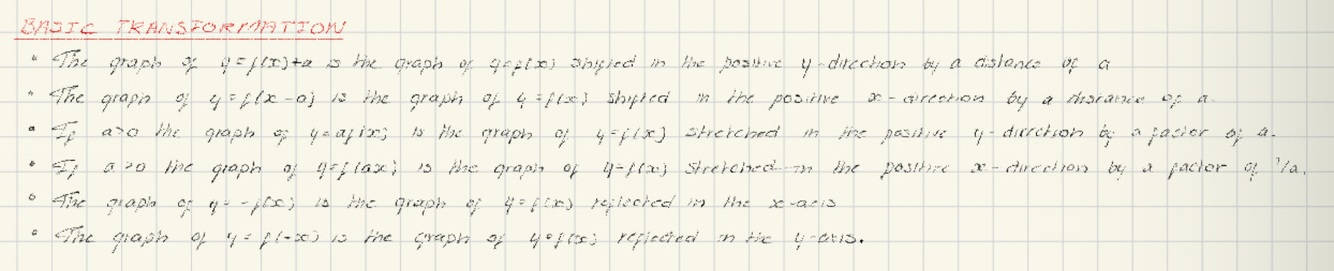 BASIC TRANSFORMATION
• The graph of y=f(x)+a is the graph of y=f(x) shifted in the positive y-direction by a distance of a
• The graph of y=f(x-a) is the graph of y=f(x) shifted in the positive x-direction by a distance of a.
• If a>0 the graph of y=af(x) is the graph of y=f(x) stretched in the positive y-direction by a factor of a.
• If a>0 the graph of y=f(ax) is the graph of y=f(x) stretched in the positive x-direction by a factor of 1/a.
• The graph of y=-f(x) is the graph of y=f(x) reflected in the x-axis
• The graph of y=f(-x) is the graph of y=f(x) reflected in the y-axis.